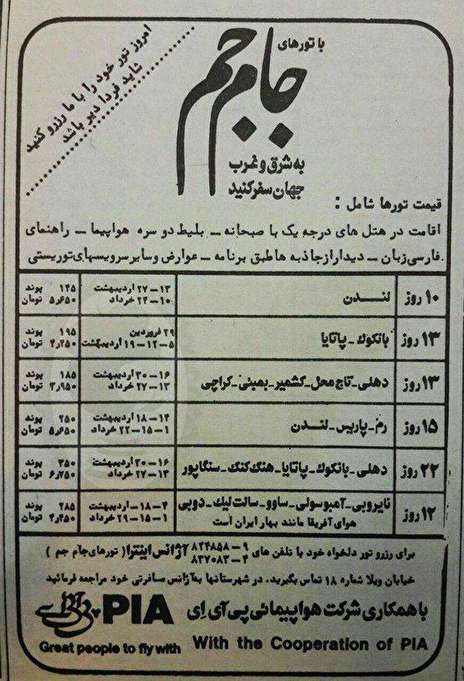 امروز تور خود را با ما رزرو کنید
شاید فردا دیر باشد
با تورهای
جام جم
به شرق و غرب
جهان سفر کنید
قیمت تورها شامل :
اقامت در هتل های درجه یک با صبحانه ـ بلیط دو سره هواپیما ـ راهنمای
فارسی زبان ـ دیدار از جاذبه ها طبق برنامه ـ عوارض و سایر سرویسهای توریستی
۱۰ روز لندن ۱۳ ـ ۲۷ اردیبهشت ۱۴۵ پوند
۱۰ ـ ۲۴ خرداد ۵٫۶۵۰ تومان
۱۳ روز بانکوک ـ پاتایا ۲۹ فروردین ۱۹۵ پوند
۵ـ۱۲ـ۱۹ اردیبهشت ۴٫۲۵۰ تومان
۱۳ روز دهلی ـ تاج محل ـ کشمیر ـ بمبئی ـ کراچی ۱۶ ـ ۳۰ اردیبهشت ۱۸۵ پوند
۱۳ ـ ۲۷ خرداد ۳٫۹۵۰ تومان
۱۵ روز رم ـ پاریس ـ لندن ۴ـ۱۸ اردیبهشت ۲۵۰ پوند
۱ـ۱۵ـ۲۲ خرداد ۵٫۶۵۰ تومان
۲۲ روز دهلی ـ بانکوک ـ پاتایا ـ هنگ کنگ ـ سنگاپور ۱۶ ـ ۳۰ اردیبهشت ۳۵۰ پوند
۱۳ ـ ۲۷ خرداد ۶٫۲۵۰ تومان
۱۲ روز نایروبی ـ آمبوسولی ـ ساوو ـ سالت لیک ـ دوبی ۴ـ۱۸ اردیبهشت ۲۸۵ پوند
هوای آفریقا مانند بهار ایران است ۱ـ۱۵ـ۲۹ خرداد ۴٫۲۵۰ تومان
برای رزرو تور دلخواه خود با تلفن های ۹ـ۸۲۴۸۵۸ آژانس اینترا (تورهای جام جم)
۴ـ۸۳۷۰۸۳
خیابان ویلا شماره ۱۸ تماس بگیرید، در شهرستانها به آژانس مسافرتی خود مراجعه فرمائید
با همکاری شرکت هواپیمائی پی آی اِی PIA پی آئی اے
Great people to fly with With the Cooperation of PIA